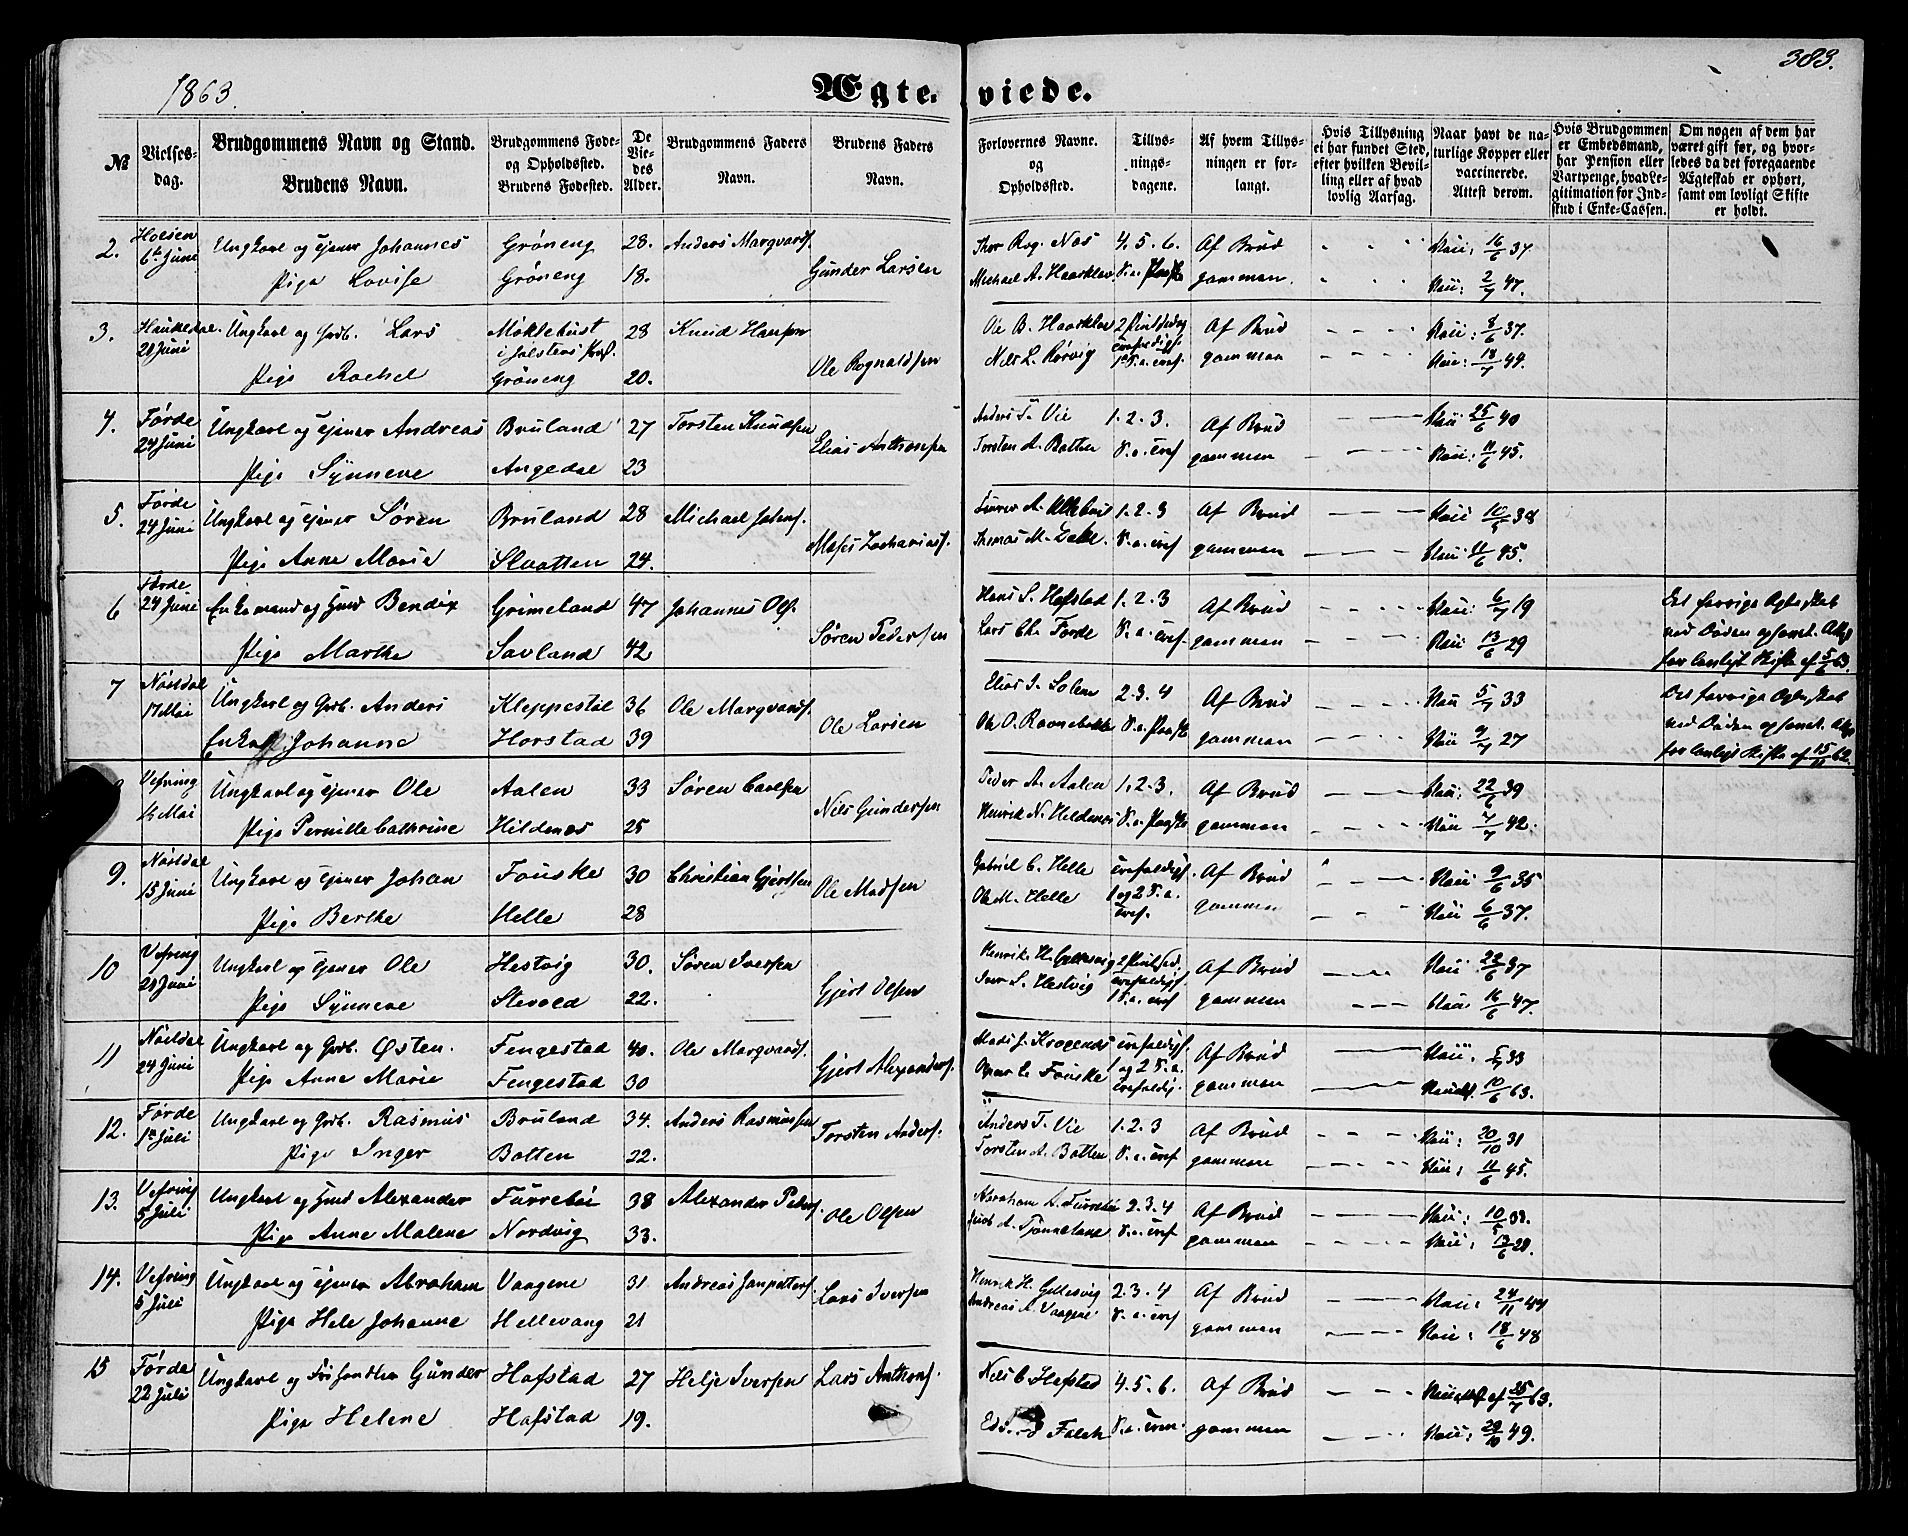 1863.
Ægte-viede.
383.
№
Vielses-dag.
Brudgommens Navn og Stand.
Brudens Navn.
Brudgommens Føde- og Opholdssted.
Brudens Fødested.
De Viedes Alder.
Brudgommens Faders Navn.
Brudens Faders Navn.
Forlovernes Navne. og Opholdssted.
Tillysningsdagene.
Af hvem Tillysningen er forlangt.
Hvis Tillysning ei har fundet Sted, efter hvilken Bevilling eller af hvad lovlig Aarsag.
Naar havt de naturlige Kopper eller vaccinerede. Attest derom.
Hvis Brudgommen er Embedsmand, har Pension eller Vartpenge, hvad Legitimation for Indskud i Enke-Cassen.
Om nogen af dem har været gift før, og hvorledes da det foregaaende Ægteskab er ophørt, samt om lovligt Skifte er holdt.
2. Holsen 6te Juni Ungkarl og Tjener Johannes Grøneng 28. Anders Marqvards. Thor Rog. Nos 4. 5. 6. Af Brud 16/6 37.
Pige Lovise Grøneng 18. Gunder Larsen Michael A. Haarklau S. e. Paaske gommen. 2/7 47.
3. Haukedal. 21 Juni Ungkarl og Grdb. Lars Møklebust i Jølsters Præst. 28 Knud Hansen Ole B. Haarklau 2 Pintsedag Af Brud 8/6 37.
Pige Rachel Grøneng 20. Ole Rognaldsen Nils L. Rørvig Trefoldigf. 1 S. e. Tref. gommen 18/7 49.
4. Førde 24 Juni Ungkarl og Tjener Andreas Bruland 27 Torsten Knudsen Anders T. Vie 1. 2. 3. Af Brud 25/6 40
Pige Synneve Angedal 23 Elias Anthonsen Torsten A. Botten S. e. Tref gommen 11/6 45.
5. Førde 24 Juni Ungkarl og Tjener Søren Bruland 28 Michael Johns. 1. 2. 3 Af Brud 10/5 38
Pige Anne Marie Slaatten 24. Moses Zachariass. Thomas M. S. e. Tref gommen 11/6 45.
6 Førde 24 Juni Enkemand og Huusd Bendix Grimeland 47 Johannes Ols. Hans S. Hafstad 1. 2. 3 Af Brud 6/7 19 Det forrige Ægteskab
Pige Marthe Savland 42 Søren Pedersen Lars Chr. Førde S. e. Tref. gommen 13/6 29 ved Døden opløst. Attest for lovligt Skifte af 5/6 63.
7 Nøstdal 17 Mai Ungkarl og Grdb. Anders Kleppestøl 36 Ole Marqvards. Elias J. Solem 2. 3. 4 Af Brud 5/7 33 Det forrige Ægteskab
Enke Johanne Horstad 39 Ole Larsen Ole O. Ravnebakke S. e. Paaske gommen 9/7 27 ved Døden opløst. Attest for lovligt Skifte af 15/11 62.
Vefring Mai Ungkarl og Tjener Ole Aalen 33 Søren Carlsen Peder A. Aalen 1. 2. 3. Af Brud 22/6 39
Pige Pernille Cathrine Hildenes 25 Nils Gundersen Henrik N. Hildenes S. e. Paaske gommen 7/7 42.
9. Nøstdal 15 Juni Ungkarl og Tjener Johan Fouske 30 Christian Gjertsen Gabriel C. Helle Trefoldigf. Af Brud 9/6 35
Pige Berthe Helle 28 Ole Madsen Ole M. Helle 1 og 2 S. e. Tref. gommen 6/6 37.
10 Vefring 21 Juni Ungkarl og Tjener Ole Hestvig 30. Søren Iversen Henrik H. 2 Pintsed. Af Brud 22/6 37
Pige Synneve Stevold 22. Gjert Olsen Iver S. Hestvig Trefoldigf. 1 S. e. Tref gommen 16/6 47.
11 Nøstdal 24 Juni Ungkarl og Grdb. Østen. Fengestad 40. Ole Marqvards. Mads J. Krogenes Trefoldigf. Af Brud 5/7 33
Pige Anne Marie Fengestad 30 Gjert Alexanders. Fouske 1 og 2 S. e. Trefoldig. gommen 10/6 63.
12. Førde 1ste Juli Ungkarl og Grdb. Rasmus Bruland 34. Anders Rasmussen Anders T. Vie 1. 2. 3 Af Brud 20/10 31
Pige Inger Botten 22. Torsten Anders. Torsten A. Botten S. e. Tref gommen 11/6 45.
13. Vefring 5 Juli Ungkarl og Huusd Alexander Furrebøe 38 Alexander Peders. Abraham A. Furrebø 2. 3. 4 Af Brud 10/5 38.
Pige Anne Malene Nordvig 33. Ole Olsen Jacob A. Tjønneland S. e. Tref gommen 13/6 28.
14. Vefring 5 Juli Ungkarl og Tjener Abraham Vaagene 31 Andreas Janpeters. Henrik H. Gillesvig 2. 3. 4 Af Brud 24/11 44
Pige Hele Johanne Hellevang 21 Lars Iversen Andreas A. Vaagene S. e. Tref gommen 18/6 48
15 Førde 22 Juli Ungkarl og Frihandler Gunder Hafstad 27 Helje Iversen Lars Anthons. Nils C. Hafstad 4. 5. 6. Af Brud 25/7 63.
Pige Helene Hafstad 19. Falch S. e. Tref. gommen 29/10 49.